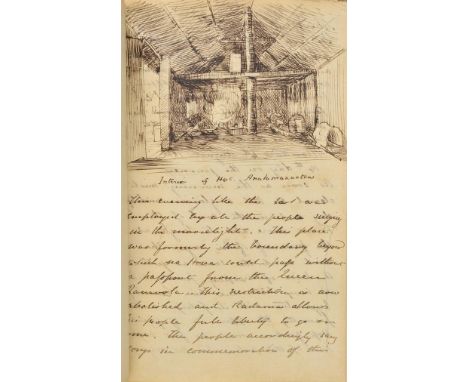 Interior of Hut
This evening like the last was
employed by all the people singing
in the moonlight. This place
was formerly the boundary beyond
which no Hova could pass without
a passport from the Queen
Ranavola. This restriction is now
abolished and Radama allows
his people full liberty to go on
. The people accordingly sang
songs in commemoration of this